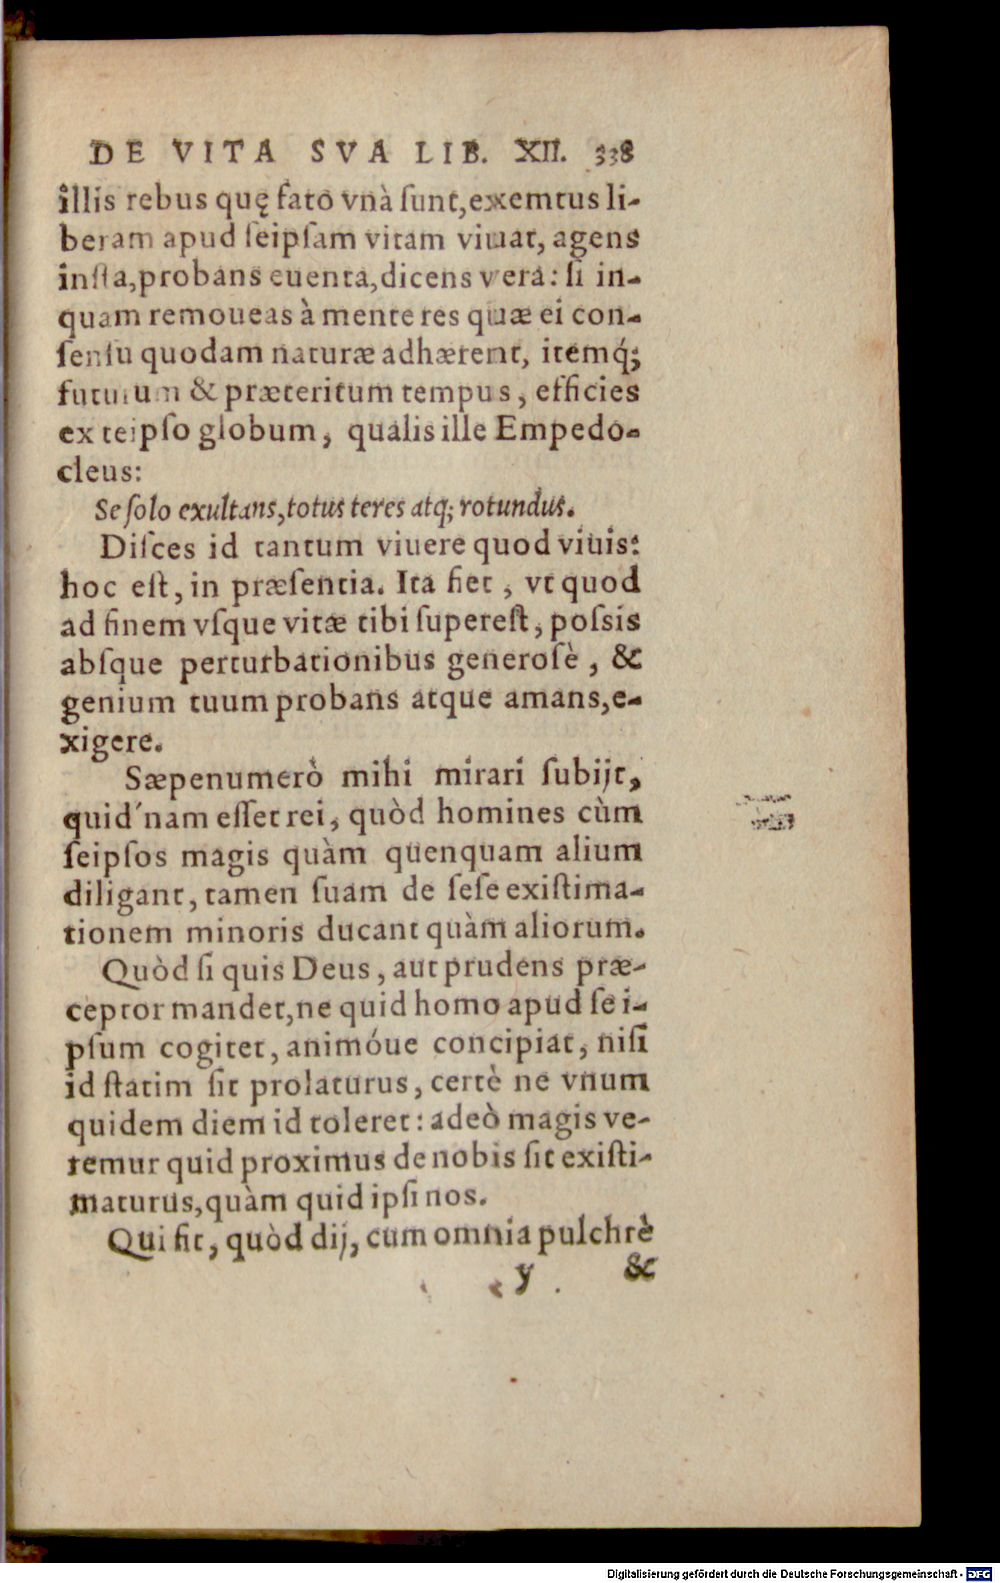 DE VITA SVA LIB. XII. 338
illis rebus quę fato vnà ſunt, exemtus li-
beram apud ſeipſam vitam viuat, agens
iuſta, probans euenta, dicens vera: ſi in-
quam remoueas à mente res quæ ei con-
ſenſu quodam naturæ adhærent, itemq́;
futurum & præteritum tempus, efficies
ex teipſo globum, qualis ille Empedo-
cleus:
Se ſolo exultans, totus teres atq; rotundus.
Diſces id tantum viuere quod viuis:
hoc eſt, in præſentia. Ita fiet, vt quod
ad finem vſque vitæ tibi ſupereſt, poſsis
abſque perturbationibus generoſè, &
genium tuum probans atque amans, e-
xigere.
Sæpenumerò mihi mirari ſubijt,
quid'nam eſſet rei, quòd homines cùm
ſeipſos magis quàm quenquam alium
diligant, tamen ſuam de ſeſe exiſtima-
tionem minoris ducant quàm aliorum.
Quòd ſi quis Deus, aut prudens præ-
ceptor mandet, ne quid homo apud ſe i-
pſum cogitet, animóue concipiat, niſi
id ſtatim ſit prolaturus, certè ne vnum
quidem diem id toleret: adeò magis ve-
remur quid proximus de nobis ſit exiſti-
maturus, quàm quid ipſi nos.
Qui fit, quòd dij, cum omnia pulchrè
y &
Digitalisierung gefördert durch die Deutsche Forschungsgemeinschaft - DFG